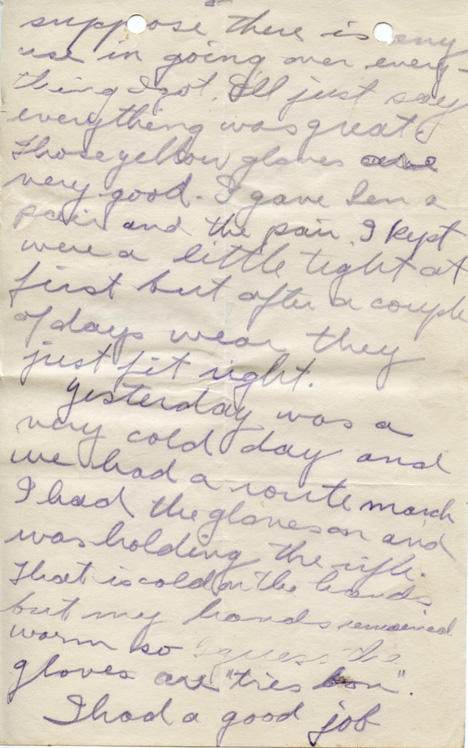 suppose there is any
use in going over every-
thing I got. I'll just say
everything was great.
Those yellow gloves are
very good. I gave Len a
pair and the pair I kept
were a little tight at
first but after a couple
of days wear they
just fit right.
Yesterday was a
very cold day and
we had a route march
I had the gloves on and
was holding the rifle.
That is cold on the hands
but my hands remained
warm so I guess the
gloves are "tres bon".
I had a good job